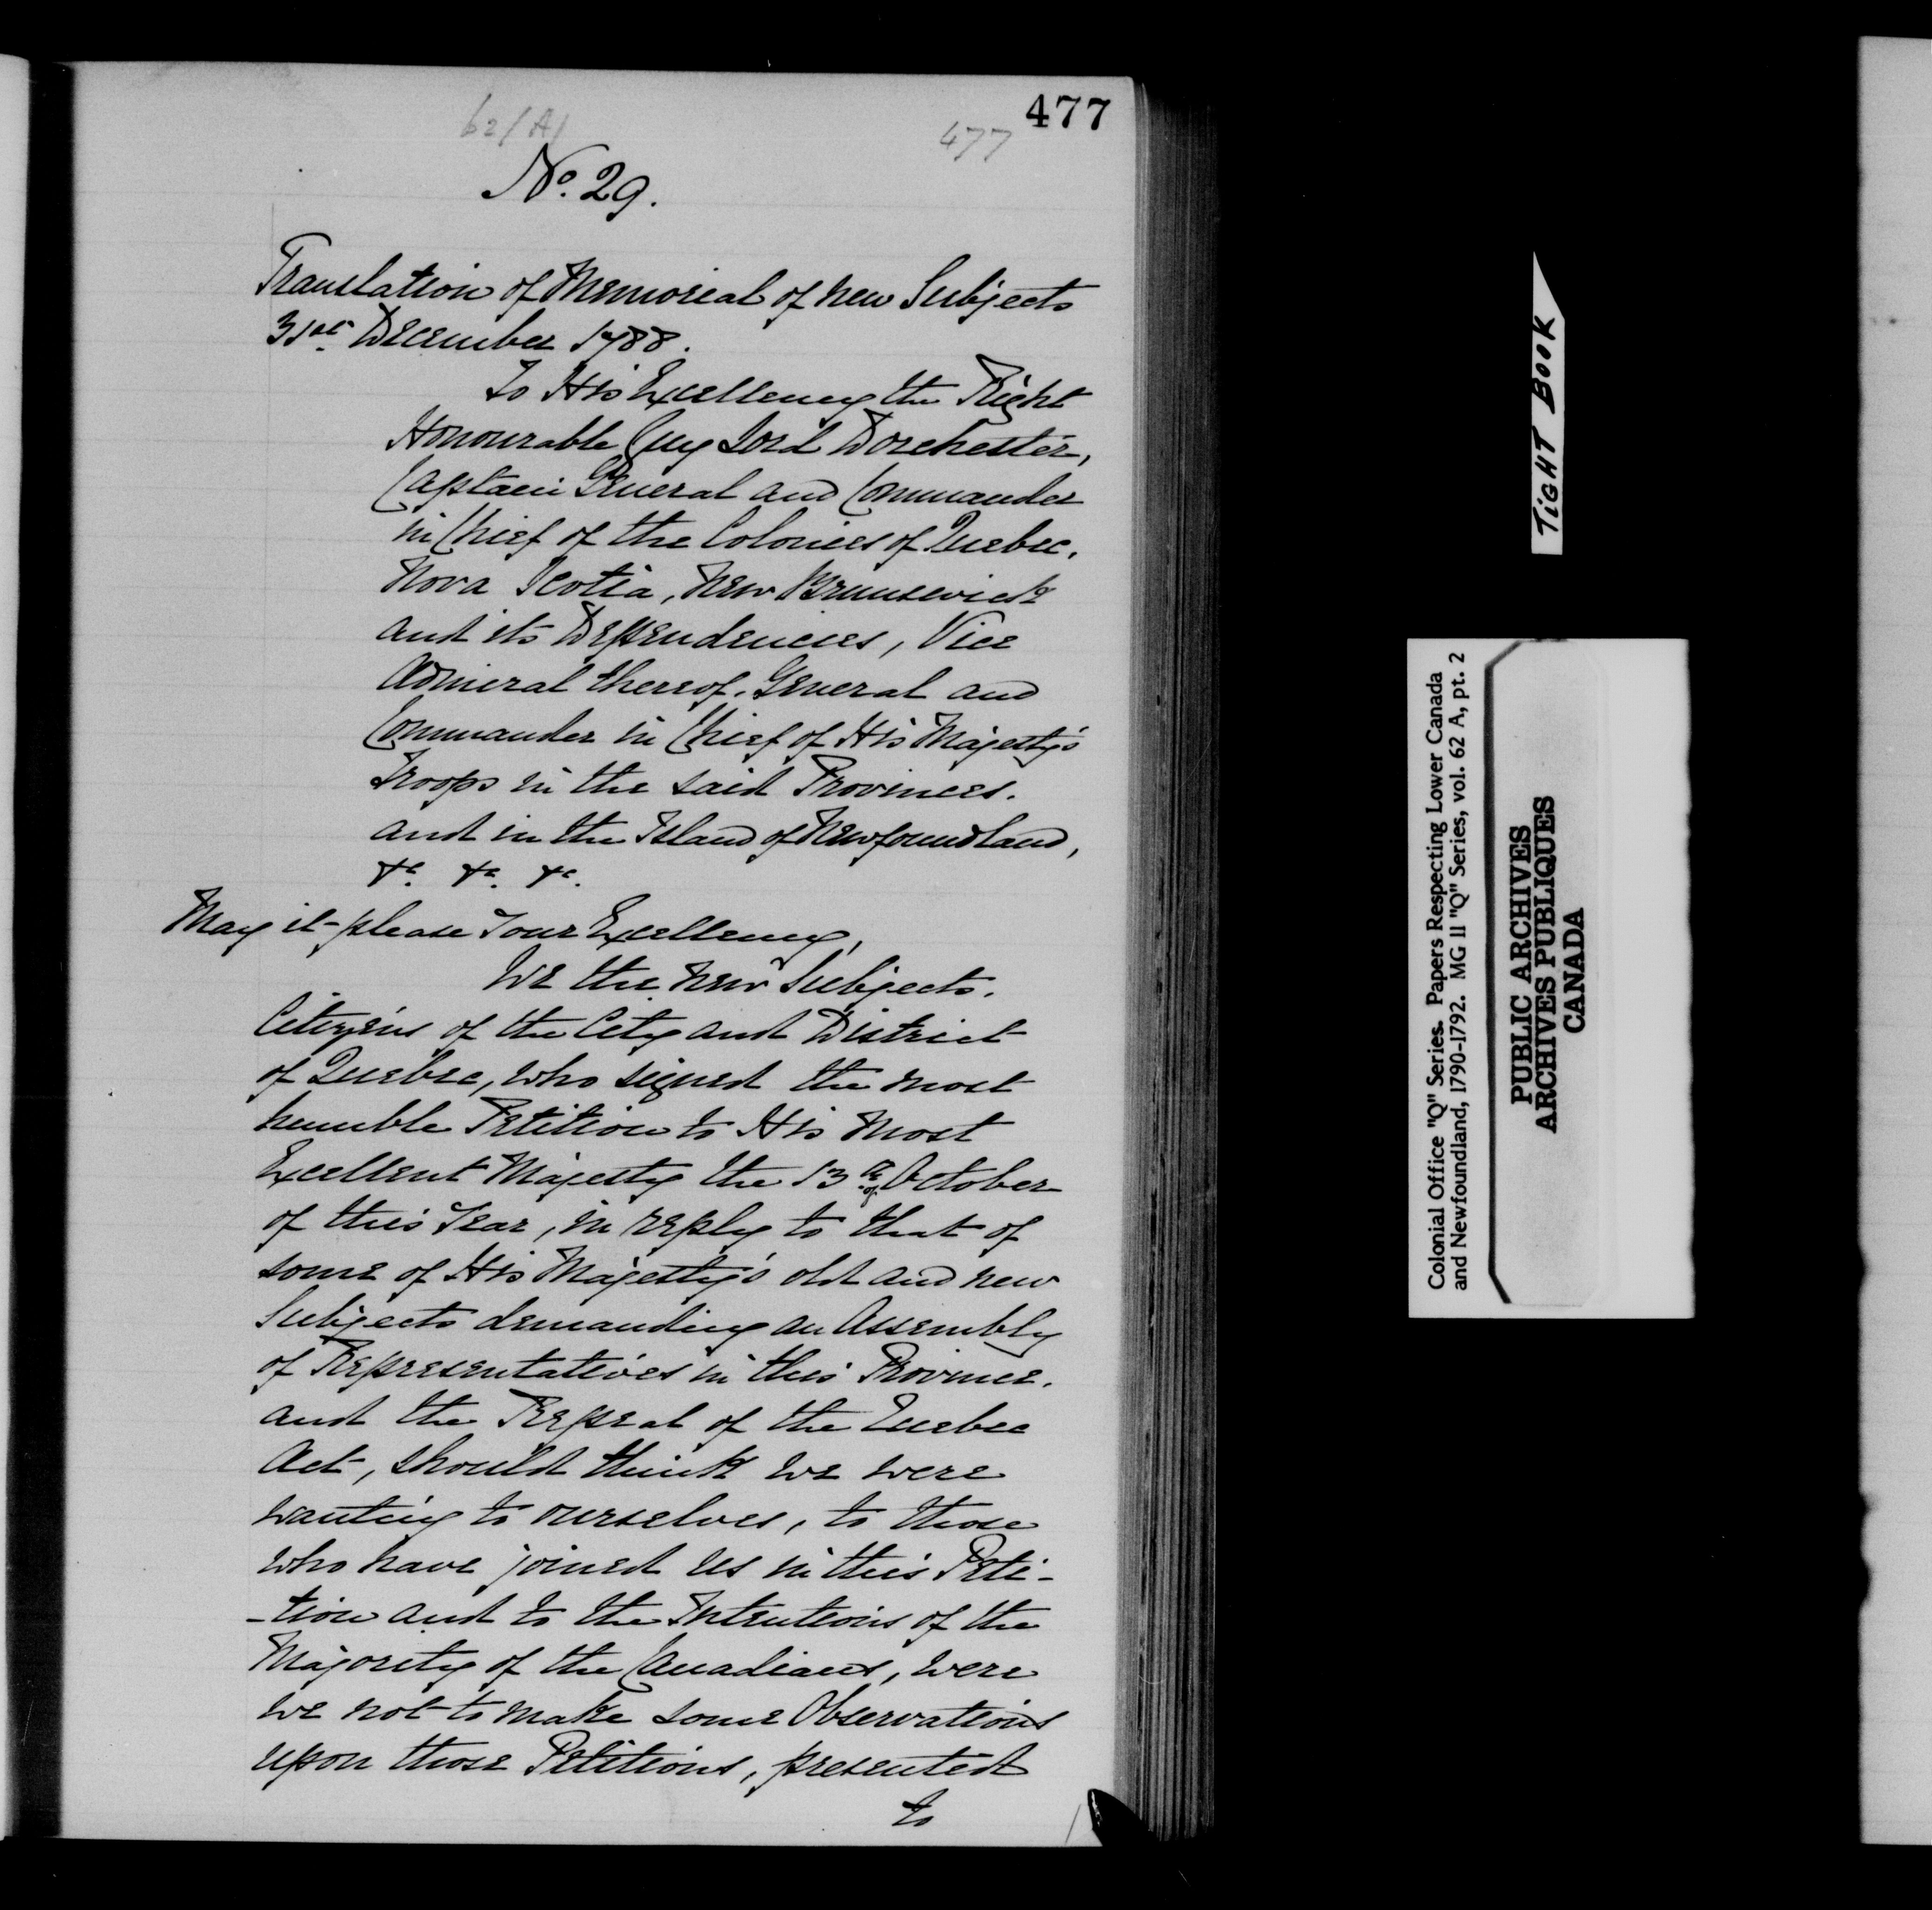 477
62/A/
477
No. 29.
Translation of Memorial of new Subjects
31st December 1788.
To His Excellency the Right
Honourable Guy Lord Dorchester,
Captain General and Commander
in Chief of the Colonies of Quebec,
Nova Scotia, New Brunswick
and its Dependencies, Vice
Admiral thereof, General and
Commander in Chief of His Majesty's
Troops in the said Provinces.
and in the Island of Newfoundland,
&c. &c. &c.
May it please Your Excellency,
We the new Subjects.
Citizens of the City and District
of Quebec, who signed the most
humble Petition to His Most
Excellent Majesty the 13th of October
of this Year, in reply to that of
some of His Majesty's old and new
Subjects demanding an Assembly
of Representatives in this Province.
and the Repeal of the Quebec
Act, should think we were
wanting to ourselves, to those
who have joined us in this Peti-
-tion and to the Intentions of the
Majority of the Canadians, were
we not to make some Observations
upon those Petitions, presented
to
TIGHT BOOK
Colonial Office "Q" Series. Papers Respecting Lower Canada
and Newfoundland, 1790-1792. MG 11 "Q" Series, vol. 62 A, pt. 2
PUBLIC ARCHIVES
ARCHIVES PUBLIQUES
CANADA